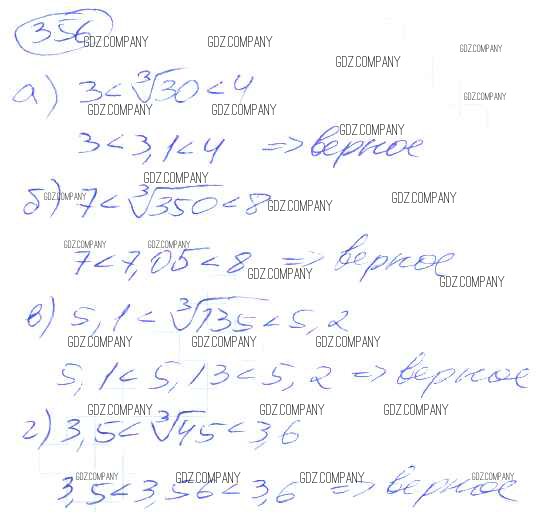 356
GDZ.COMPANY GDZ.COMPANY GDZ.COMPANY
GDZ.COMPANY
а) 3 < ∛30 < 4
GDZ.COMPANY
GDZ.COMPANY GDZ.COMPANY
GDZ.COMPANY
3 < 3,1 < 4 => верное
GDZ.COMPANY
б) 7 < ∛350 < 8
GDZ.COMPANY GDZ.COMPANY GDZ.COMPANY
GDZ.COMPANY GDZ.COMPANY
7 < 7,05 < 8 => верное
GDZ.COMPANY GDZ.COMPANY
в) 5,1 < ∛135 < 5,2
GDZ.COMPANY GDZ.COMPANY GDZ.COMPANY
5,1 < 5,13 < 5,2 => верное
GDZ.COMPANY GDZ.COMPANY GDZ.COMPANY
г) 3,5 < ∛45 < 3,6
GDZ.COMPANY GDZ.COMPANY GDZ.COMPANY GDZ.COMPANY
3,5 < 3,56 < 3,6 => верное